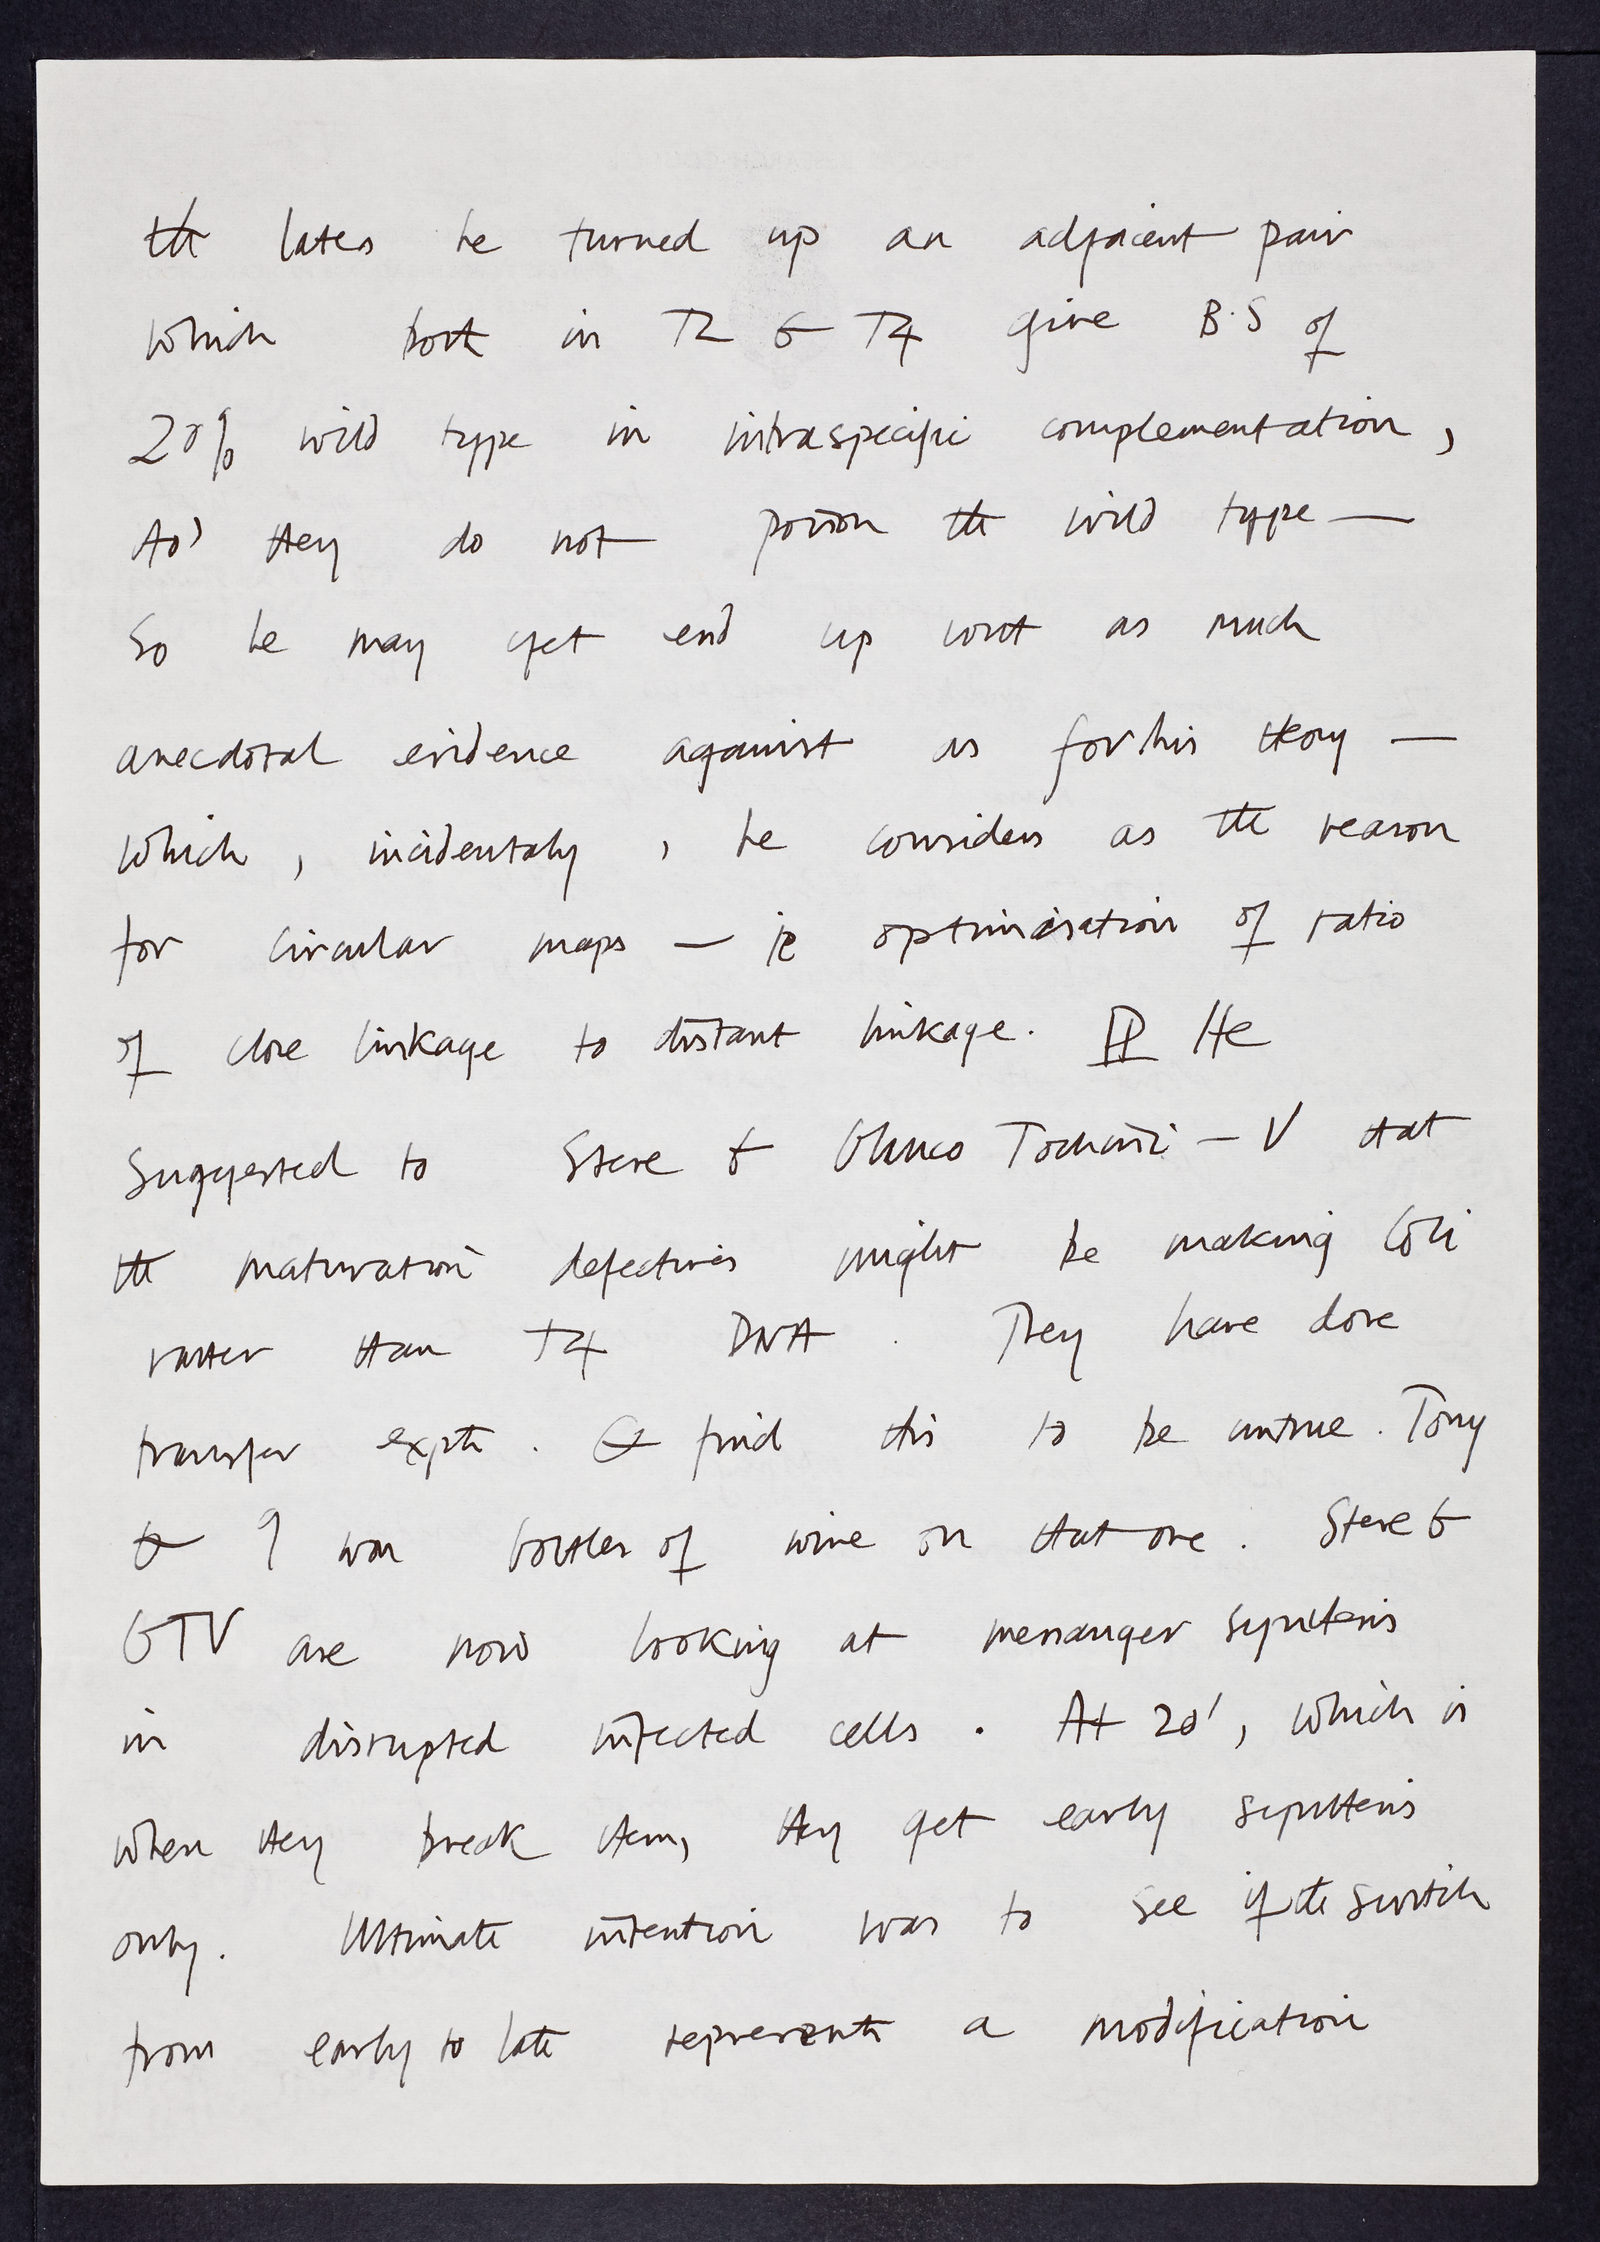 the lates he turned up an adjacent pair
which both in T2 & T4 give B.S of
20% wild type in intraspecific complementation,
tho' they do not poison the wild type —
So he may yet end up with as much
anecdotal evidence against as for his theory —
which, incidentaly, he considers as the reason
for circular maps — ie optimisation of ratio
of close linkage to distant linkage. He
Suggested to Steve & Glauco Tocchini-V that
the maturation defectives might be making Coli
rather than T4 DNA. They have done
transfer expts. & find this to be untrue. Tony
& I won bottles of wine on that one. Steve &
GTV are now looking at messanger synthesis
in disrupted infected cells. At 20', which is
when they break them, they get early synthesis
only. Ultimate intention was to see if the switch
from early to late represents a modification